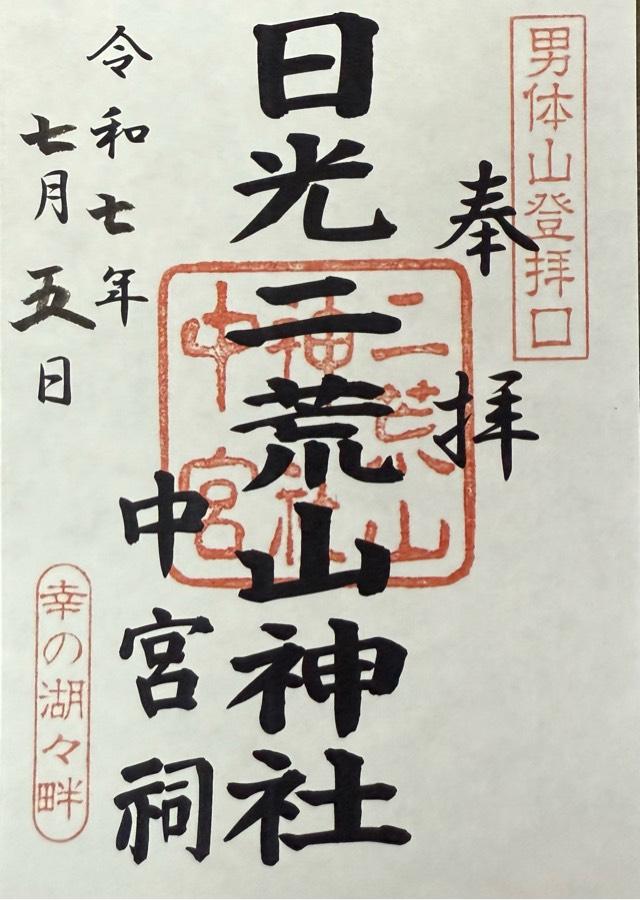 男体山登拝口
奉拝
日光二荒山神社
中宮祠
二荒山
神社
中宮
令和七年
七月五日
幸の湖々畔